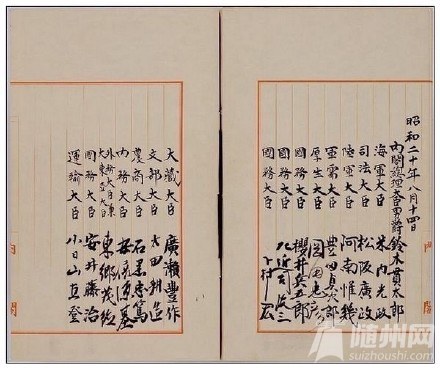 昭和二十年八月十四日
內閣總理大臣男爵 鈴木貫太郎
海軍大臣 米內光政
司法大臣 松阪廣政
陸軍大臣 阿南惟幾
軍需大臣 豊田貞次郎
厚生大臣 岡田忠彦
國務大臣 櫻井兵五郎
國務大臣 左近司政三
國務大臣 下村宏
大藏大臣 廣瀨豊作
文部大臣 太田耕造
農商大臣 石黑忠篤
內務大臣 安倍源基
外務大臣兼大東亞大臣 東鄉茂德
國務大臣 安井藤治
運輸大臣 小日山直登
随州网
suizhoushi.com